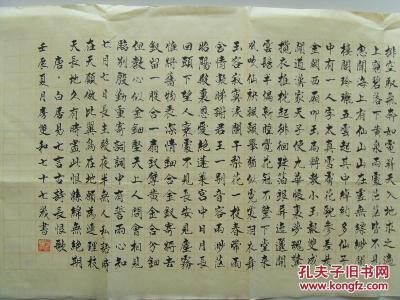 排空馭氣奔如電升天入地求之遍
上窮碧落下黃泉兩處茫茫皆不見
忽聞海上有仙山山在虛無縹緲間
樓閣玲瓏五雲起其中綽約多仙子
中有一人字太真雪膚花貌參差是
金闕西廂叩玉扃轉教小玉報雙成
聞道漢家天子使九華帳裏夢魂驚
攬衣推枕起徘徊珠箔銀屏迤邐開
雲鬢半偏新睡覺花冠不整下堂來
風吹仙袂飄飄舉猶似霓裳羽衣舞
玉容寂寞淚闌干梨花一枝春帶雨
含情凝睇謝君王一別音容兩渺茫
昭陽殿裏恩愛絕蓬萊宮中日月長
回頭下望人寰處不見長安見塵霧
惟將舊物表深情鈿合金釵寄將去
釵留一股合一扇釵擘黃金合分鈿
但教心似金鈿堅天上人間會相見
臨別殷勤重寄詞詞中有誓兩心知
七月七日長生殿夜半無人私語時
在天願作比翼鳥在地願為連理枝
天長地久有時盡此恨綿綿無絕期
唐·白居易七言古詩長恨歌
壬辰夏月李和七十七歲書
孔夫子旧书网
KONGFZ.COM